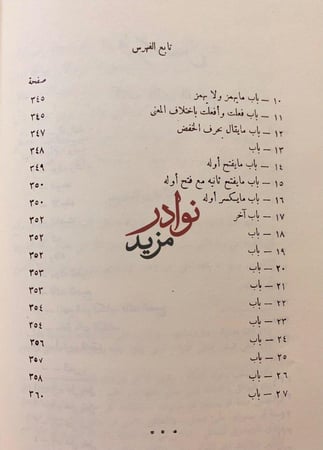 تابع الفهرس
صفحة
١٠ – باب مايهمز ولا يهمز ٣٤٥
١١ – باب فعلت وأفعلت باختلاف المعنى ٣٤٥
١٢ – باب مايقال بحرف الخفض ٣٤٧
١٣ – باب ٣٤٨
١٤ – باب مايفتح أوله ٣٤٩
١٥ – باب مايفتح ثانيه مع فتح أوله ٣٥٠
١٦ – باب مايكسر أوله ٣٥٠
١٧ – باب آخر ٣٥٢
١٨ – باب ٣٥٢
١٩ – باب ٣٥٢
٢٠ – باب ٣٥٣
٢١ – باب ٣٥٣
٢٢ – باب ٣٥٤
٢٣ – باب ٣٥٤
٢٤ – باب ٣٥٦
٢٥ – باب ٣٥٧
٢٦ – باب ٣٥٨
٢٧ – باب ٣٦٠
نوادر
مزيد